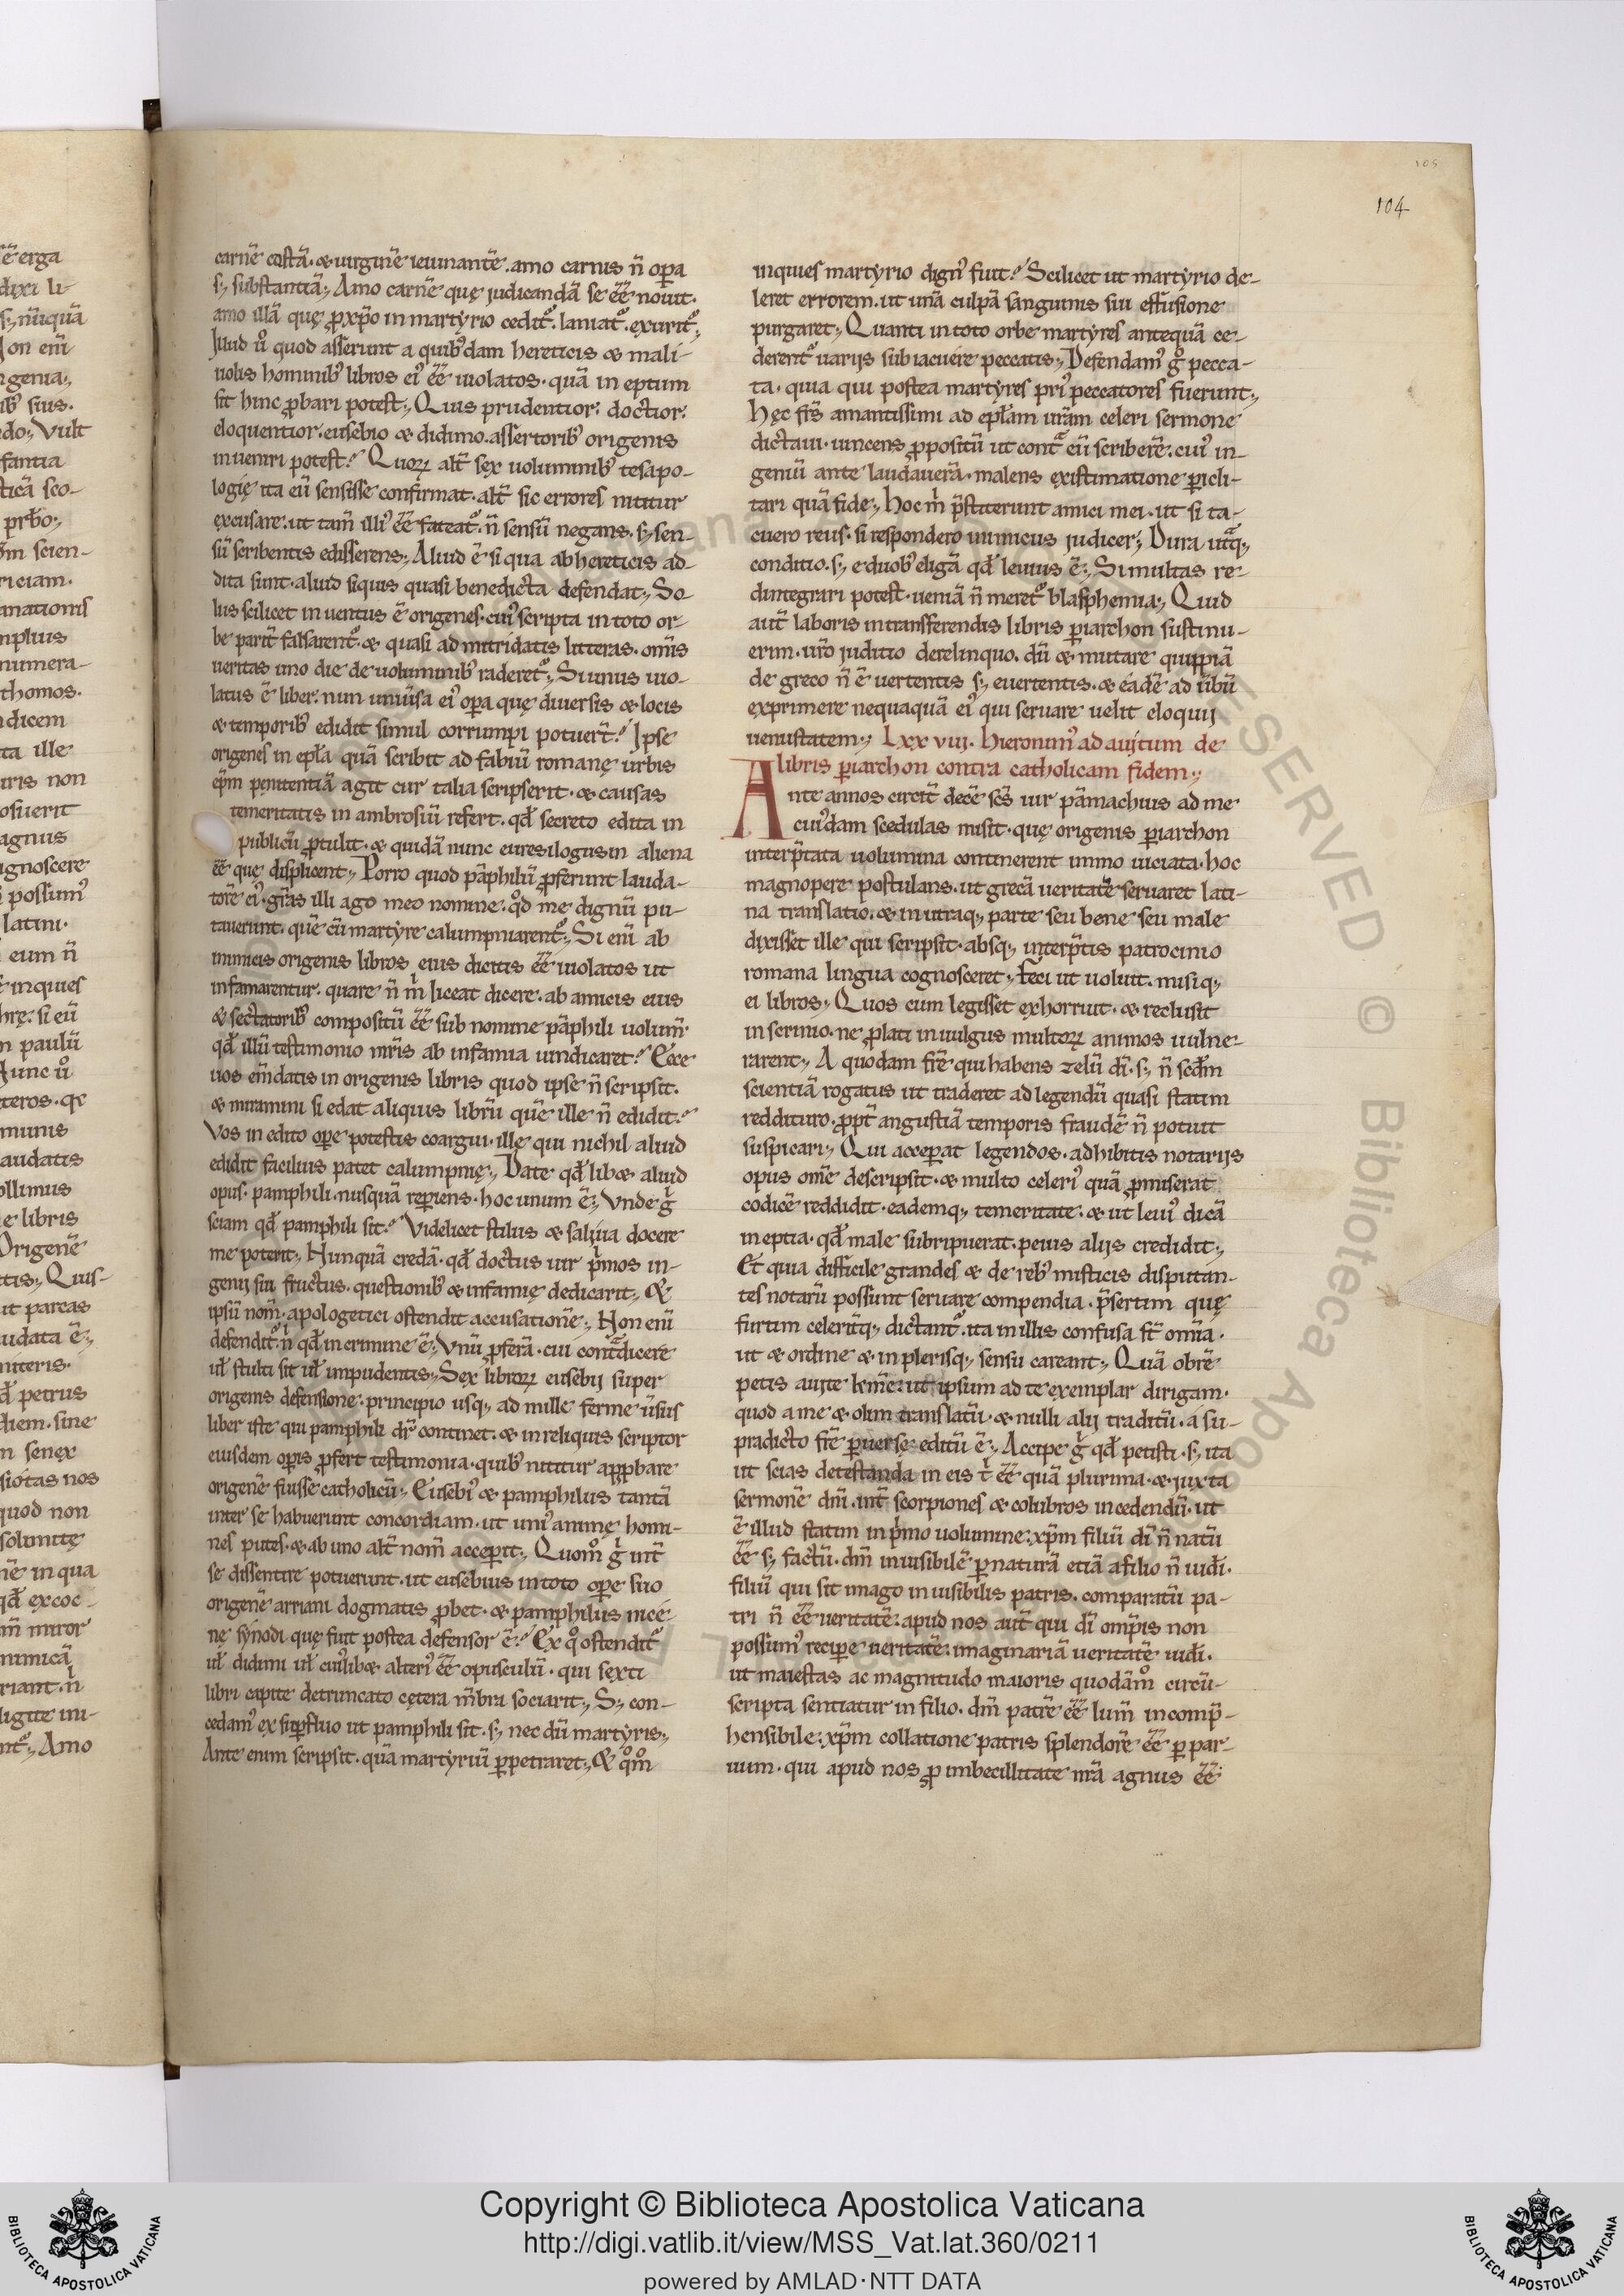 105
104
carnē castā. & uirginē ieiunantē. amo carnis n̄ opa
s; substantiā; Amo carnē quę judicandā se ēē nouit.
amo illā quę ꝓ xp̄o in martyrio cedit᷑. laniat᷑. exurit᷑;
Illud ů quod asserunt a quibꝰdam hereticis & mali-
uolis hominibꝰ libros eiꝰ ēē uiolatos. quā in eptum
sit hinc ꝓbari potest; Quis prudentior: doctior:
eloquentior. eusebio & didimo. assertoribꝰ origenis
inueniri potest? Quoꝝ alt̄ sex uoluminibꝰ tesapo-
logię ita eū sensisse confirmat. alt̄ sic errores nititur
excusare. ut tam̄ illiꝰ ēē fateat᷑. n̄ sensū negans. s; sen-
sū scribentis edisserens; Aliud ē si qua ab hereticis ad-
dita sunt. aliud siquis quasi benedicta defendat; So
lus scilicet inuentus ē origenes. cuiꝰ scripta in toto or-
be parit̄ falsarent᷑. & quasi ad mitridatis litteras. om̄is
ueritas uno die de uoluminibꝰ raderet᷑; Si unus uio-
latus ē liber. num uniūsa eiꝰ opa quę diuersis & locis
& temporibꝰ edidit simul corrumpi potuer̄t? Ipse
origenes in epl̄a quā scribit ad fabiū romanę urbis
ep̄m penitentiā agit cur talia scripserit. & causas
temeritatis in ambrosiū refert. qđ secreto edita in
publicū ꝓtulit. & quidā nunc euresilogus in aliena
ēē quę displicent; Porro quod pāphilū ꝓferunt lauda-
torē eiꝰ. gr̄as illi ago meo nomine. qd̊ me dignū pu-
tauerunt. quē cū martyre calumpniarent᷑; Si enī ab
inimicis origenis libros eius dicitis ēē uiolatos ut
infamarentur. quare n̄ m̊ liceat dicere. ab amicis eius
& sectatoribꝰ compositū ēē sub nomine pāphili uolum̄.
qđ illū testimonio mr̄is ab infamia uindicaret? Ecce
uos em̄datis in origenis libris quod ipse n̄ scripsit.
& miramini si edat aliquis librū quē ille n̄ edidit?
Vos in edito ope potestis coargui. ille qui nichil aliud
edidit facilius patet calumpnię; Date qđ lib& aliud
opus. pamphili. nusquā repiens. hoc unum ē; Vnde g̊
sciam qđ pamphili sit? Videlicet stilus & saliua docere
me poterit; Nunquā credā. qđ doctus uir p̊mos in-
genii sui fructus. questionibꝰ & infamię dedicarit; &
ipsū nom̄. apologetici ostendit accusationē; Non enī
defendit᷑. n̊ qđ in crimine ē; Vnū ꝓferā. cui cont̄dicere
ul̄ stulti sit ul̄ impudentis; Sex libroꝝ eusebij super
origenis defensione. principio usq; ad mille ferme ūsus
liber iste qui pamphili dr̄ continet. & in reliquis scriptor
eiusdem opis ꝓfert testimonia. quibꝰ nititur apꝓbare
origenē fuisse catholicū; Eusebiꝰ & pamphilus tantā
inter se habuerunt concordiam. ut uniꝰ animę homi-
nes putes. & ab uno alt̄ nom̄ acceperit; Quom̊ g̊ int̄
se dissentire potuerunt. ut eusebius in toto ope suo
origenē arriani dogmatis ꝓbet. & pamphilus nicé-
nę synodi. quę fuit postea defensor ē? Ex q̊ ostendit᷑
ul̄ didimi ul̄ cuiꝰlib& alteriꝰ ēē opusculū. qui sexti
libri capite detruncato cętera m̄bra sociarit; S; con-
cedamꝰ ex supfluo ut pamphili sit. s; nec dū martyris;
Ante enim scripsit. quā martyriū ppetraret; & qm̊
inquies martyrio dignꝰ fuit? Scilicet ut martyrio de-
leret errorem. ut unā culpā sanguinis sui effusione
purgaret; Quanti in toto orbe martyres antequā ce-
derent᷑ uarijs subiacuére peccatis; Defendamꝰ g̊ pecca-
ta. quia qui postea martyres priꝰ peccatores fuerunt;
Hęc fr̄s amantissimi ad epl̄am ur̄am celeri sermone
dictaui. uincens ꝓpositū ut cont̄ eū scriberē. cuiꝰ in-
geniū ante laudauerā. malens existimatione picli-
tari quā fide; hoc m̊ p̄stiterunt amici mei. ut si ta-
cuero reus. si respondero inimicus judicer; Dura ut̄q;
conditio. s; e duobꝰ eligā qđ leuius ē; Simultas re-
dintegrari potest. ueniā n̄ meret᷑ blasphemia; Quid
aut̄ laboris in transferendis libris piarchon sustinu-
erim. ur̄o juditio derelinquo. dū & mutare quippiā
de greco n̄ ē uertentis s; euertentis. & éadē ad ūbū
exprimere nequaquā eiꝰ qui seruare uelit eloquij
uenustatem; Lxx viij. hieronimꝰ ad auitum de
libris piarchon contra catholicam fidem;
Ante annos circit̄ decē sc̄s uir pāmachius ad me
cuiꝰdam scedulas misit. quę origenis piarchon
interp̄tata uolumina continerent immo uiciata. hoc
magnopere postulans. ut grecā ueritatē seruaret lati-
na translatio. & in utraq; parte seu bene seu male
dixisset ille qui scripsit. absq; interp̄tis patrocinio
romana lingua cognosceret; feci ut uoluit. misiq;
ei libros; Quos cum legisset exhorruit. & reclusit
in scrinio. ne ꝓlati in uulgus multoꝝ animos uulne-
rarent; A quodam fr̄e qui habens zelū dī. s; n̄ scd̄m
scientiā rogatus ut traderet ad legendū quasi statim
reddituro. ꝓpt̄ angustiā temporis fraudē n̄ potuit
suspicari; Qui acceperat legendos. adhibitis notarijs
opus om̄e descripsit. & multo celeriꝰ quā ꝓmiserat
codicē reddidit. eademq; temeritate. & ut leuiꝰ dicā
ineptia. qđ male subripuerat. peius alijs credidit;
Et quia difficile grandes & de rebꝰ misticis disputan-
tes notarū possunt seruare compendia. p̄sertim quę
furtim celerit̄q; dictant᷑. ita in illis confusa st̄ om̄ia.
ut & ordine & in plerisq; sensu careant; Quā obrē
petis auite km̄e. ut ipsum ad te exemplar dirigam.
quod a me & olim translatū. & nulli alij traditū. a su-
pradicto fr̄e puerse editū ē; Accipe g̊ qđ petisti. s; ita
ut scias detestanda in eis t̊ ēē quā plurima. & juxta
sermonē dn̄i. int̄ scorpiones & colubros incedendū. ut
ē illud statim in p̊mo uolumine. xp̄m filiū dī n̄ natū
ēē s; factū. dm̄ inuisibilē p naturā etiā a filio n̄ uidī.
filiū qui sit imago inuisibilis patris. comparatū pa-
tri n̄ ēē ueritatē. apud nos aut̄ qui dī omp̄is non
possumꝰ recipe ueritatē. imaginariā ueritatē uidī.
ut maiestas ac magnitudo maioris quodām̊ circū-
scripta sentiatur in filio. dm̄ patrē ēē lum̄ incomp̄-
hensibile. xp̄m collatione patris splendorē ēē p par-
uum. qui apud nos ꝓ imbecillitate nr̄a agnus ēē
Copyright © Biblioteca Apostolica Vaticana
http://digi.vatlib.it/view/MSS_Vat.lat.360/0211
powered by AMLAD·NTT DATA
BIBLIOTECA APOSTOLICA VATICANA
BIBLIOTECA APOSTOLICA VATICANA